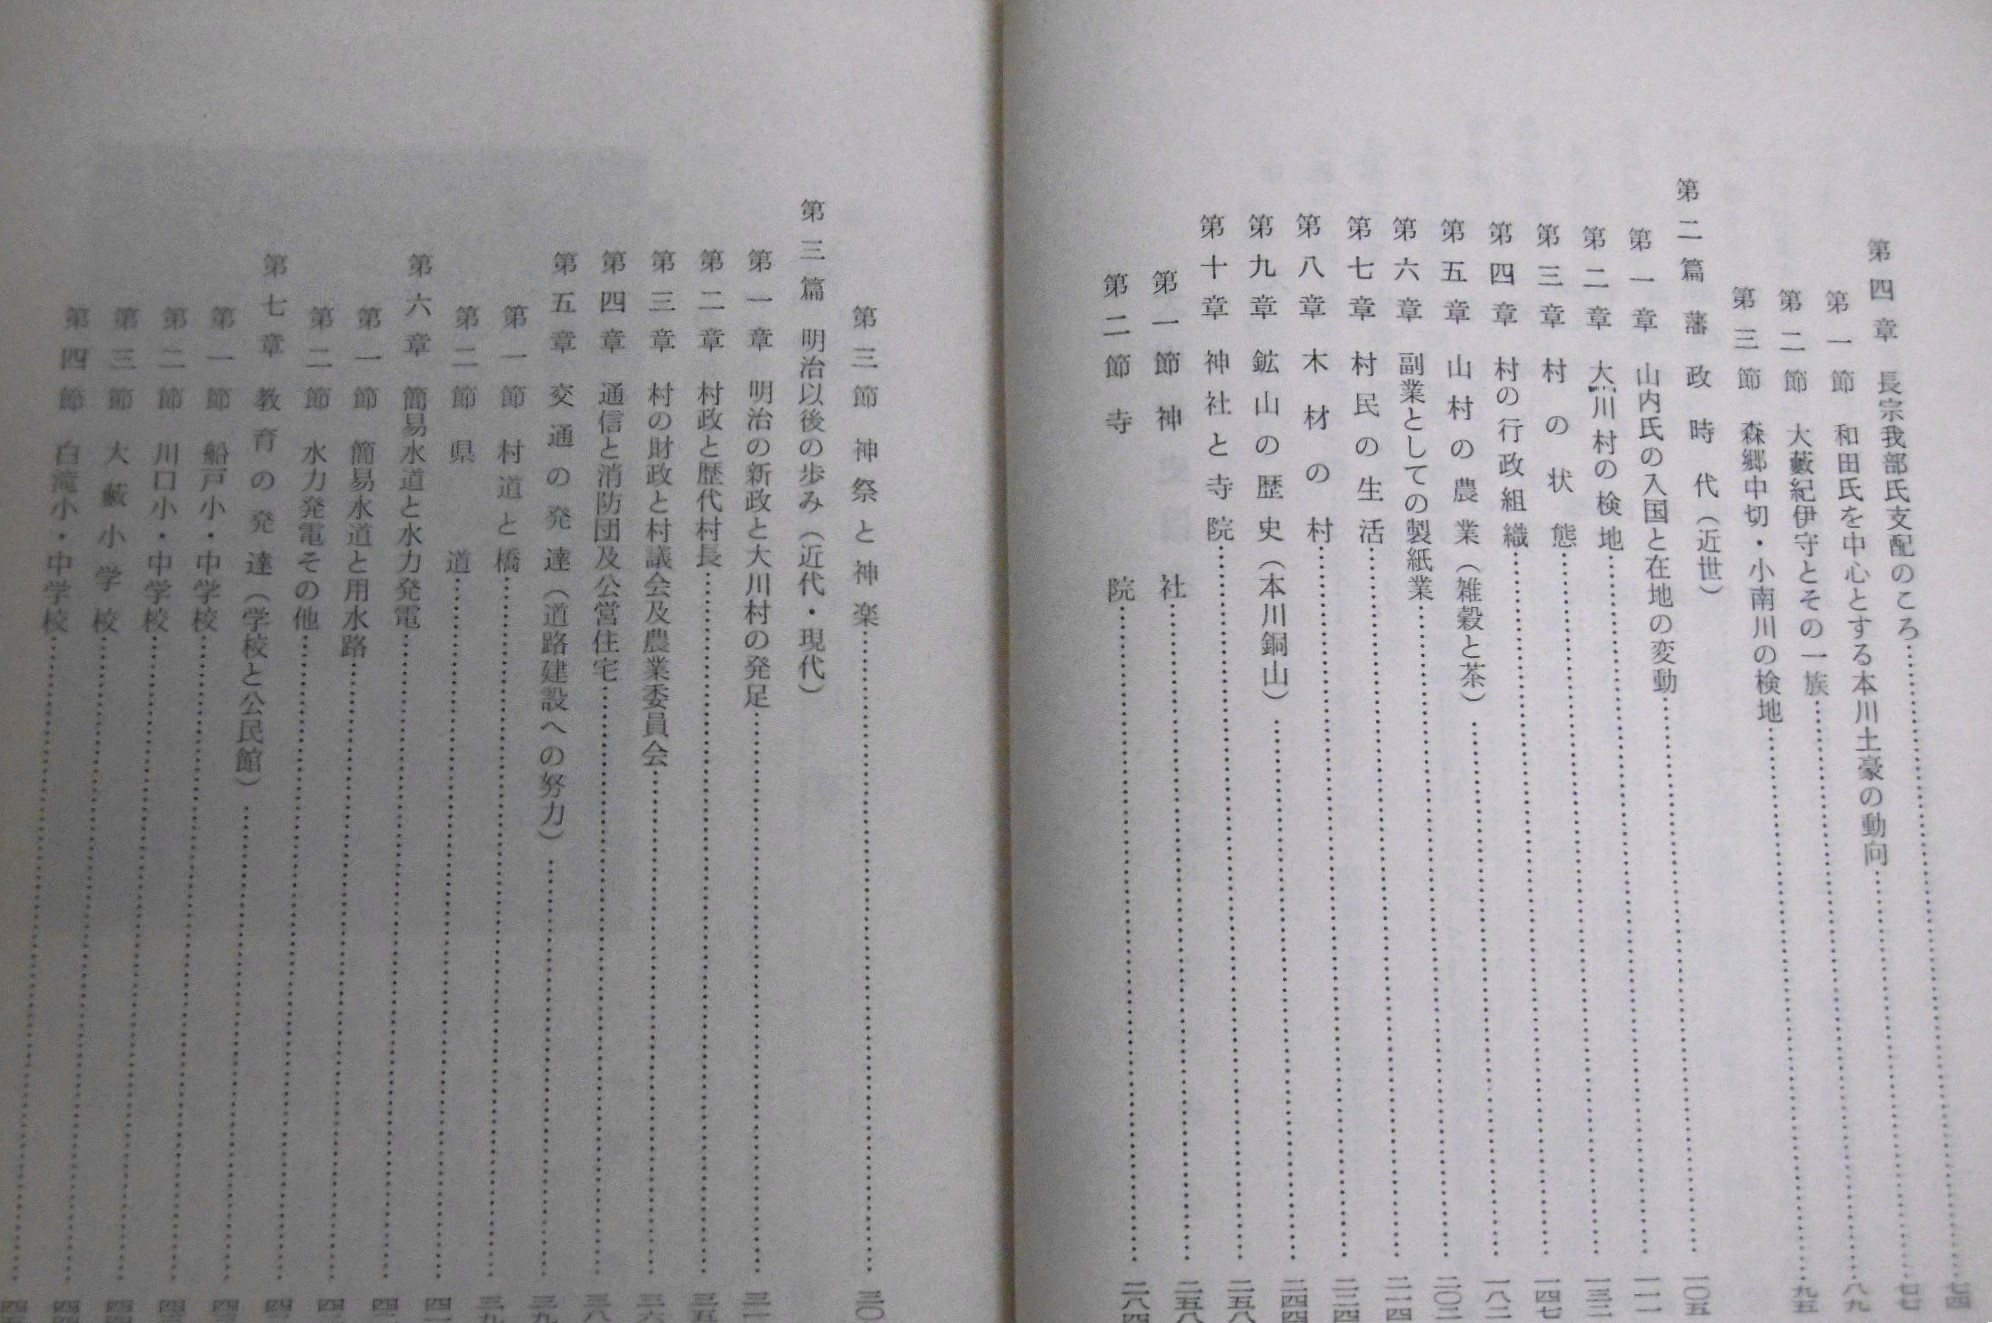 第四章 長宗我部氏支配のころ……七四
第一節 和田氏を中心とする本川土豪の動向……七七
第二節 大藪紀伊守とその一族……八九
第三節 森郷中切・小南川の検地……九五
第二篇 藩政時代（近世）
第一章 山内氏の入国と在地の変動……一〇五
第二章 大川村の検地……一一一
第三章 村の状態……一三二
第四章 村の行政組織……一四七
第五章 山村の農業（雑穀と茶）……一八二
第六章 副業としての製紙業……二〇二
第七章 村民の生活……二一四
第八章 木材の村……二二四
第九章 鉱山の歴史（本川銅山）……二四四
第十章 神社と寺院……二五八
第一節 神社……二五八
第二節 寺院……二八四
第三節 神祭と神楽……
第三篇 明治以後の歩み（近代・現代）
第一章 明治の新政と大川村の発足……
第二章 村政と歴代村長……
第三章 村の財政と村議会及農業委員会……
第四章 通信と消防団及公営住宅……
第五章 交通の発達（道路建設への努力）……
第一節 村道と橋……
第二節 県道……
第六章 簡易水道と水力発電……
第一節 簡易水道と用水路……
第二節 水力発電その他……
第七章 教育の発達（学校と公民館）……
第一節 船戸小・中学校……
第二節 川口小・中学校……
第三節 大藪小学校……
第四節 白滝小・中学校……